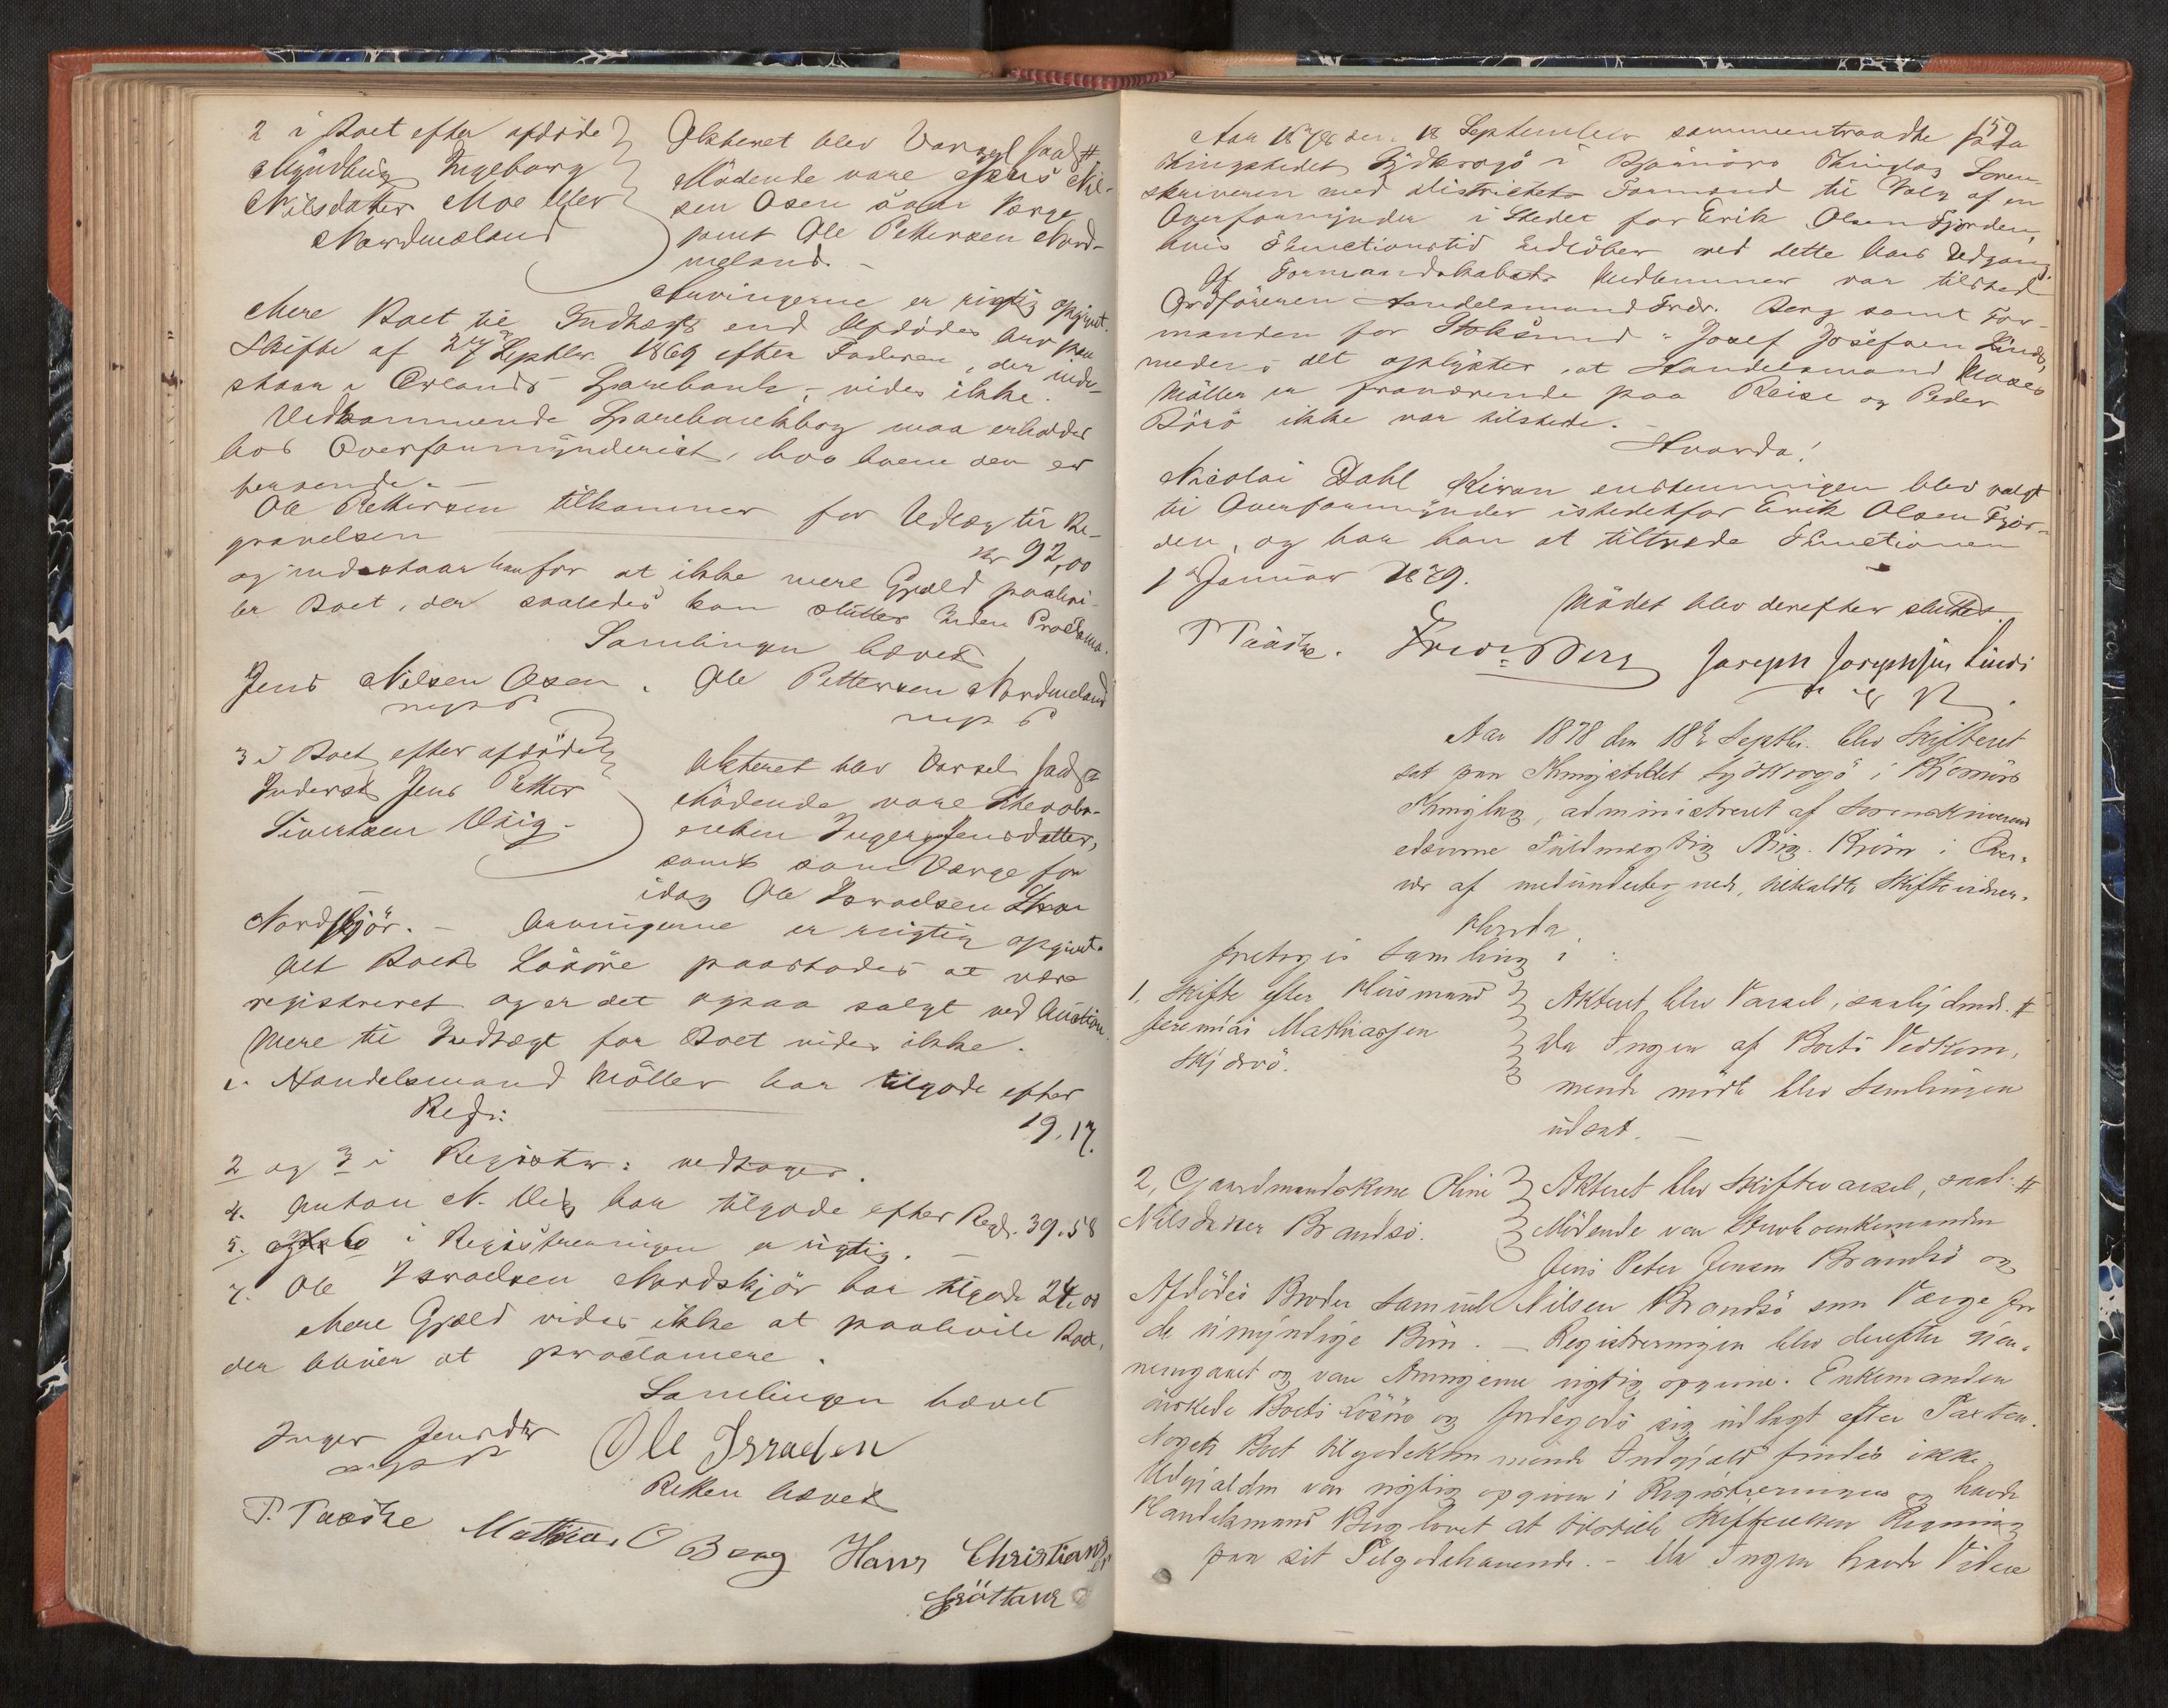 2 i Boet efter afdøde
Myndling Ingeborg
Nilsdatter Moe eller
Nordmeland
Akteret blev Varsel saalj #
Mødende vare Jens Nil-
sen Osen som Værge
samt Ole Pettersen Nord-
meland. –
Arvingerne er rigtig opgivet.
Mere Boet til Indtægt end Afdødes Arv paa
Skifte af 2den Septbr. 1869 efter Faderen, der inde-
staar i Ørlands Sparebank, vides ikke.
Vedkommende Sparebankbog maa erholdes
hos Overformynderiet, hos hvem den er
beroende. –
Ole Pettersen tilkommer for Udlæg til Be-
gravelsen Kr 92,00
og indestaar han for at ikke mere Gjæld paahvi-
ler Boet, der saaledes kan sluttes uden Proclama.
Samlingen hævet
Jens Nilsen Osen. Ole Pettersen Nordmeland
m p P m p P
3 i Boet efter afdøde
Inderst Jens Petter
Sivertsen Vsig.
Akteret blev Varsel saalj #
Mødende vare Stervbo-
enken Inger Jensdatter,
samt som Værge for
idag Ole Israelsen
Nordskjør. – Arvingerne er rigtig opgivet.
Alt Boets Løsøre paastodes at være
registreret og er det ogsaa solgt ved Auction.
Mere til Indtægt for Boet vides ikke.
1. Handelsmand Møller har tilgode efter
Regn: 19.17.
2 og 3 i Registr: vedtages.
4. Anton N. har tilgode efter Regn. 39.58
5. og 6 i Registreringen er rigtig. –
7. Ole Israelsen Nordskjør har tilgode 24,00
Mere Gjæld vides ikke at paahvile Boet,
der bliver at proclamere.
Samlingen hævet
Inger Jensdtr Ole Israelsen
m p P
Retten hævet
P. Paaske Mathias O Berg Hans Christiansen
Grøttand
159
Aar 1878 den 18 September sammentraadte paa
Thingstedet Sydkrogø i Bjørnørs Thinglag Soren-
skriveren med Districtets Formænd til Valg af en
Overformynder i Stedet for Erik Olsen Fjorden,
hvis Functionstid udløber ved dette Aars Udgang.
Af Formandskabets Medlemmer var tilsted
Ordføreren Handelsmand Fredr. Berg samt For-
manden for Stoksund Josef Josefsen Linds,
medens det oplystes, at Handelsmand
Møller er fraværende paa Reise og Peder
Børø ikke var tilstede. –
Hvorda!
Nicolai Dahl Kiran enstemmigen blev valgt
til Overformynder istedetfor Erik Olsen Fjor-
den, og har han at tiltræde Functionen
1ste Januar 1879.
Mødet blev derefter sluttet.
P Paaske. Fredr. Berg Joseph Josephsen Linds
Aar 1878 den 18de Septbr. blev Skifteret
sat paa Thingstedet Sydkrogø i Bjørnørs
Thinglag, administreret af Sorenskriverens
edsvorne Fuldmægtig Birg. Kjøm i Over-
vær af medundertegnede, tilkaldte Skiftevidner.
Hvorda
foretoges Samling i :
1. Skifte efter Husmand
Jeremias Mathiassen
Skjærvø.
Akteret blev Varsel, saalydende. #
Da Ingen af Boets Vedkom-
mende mødte blev Samlingen
udsat. –
2, Gaardmandskone Oline
Nilsdatter Brandsø.
Akteret blev Skiftevarsel, saal. #
Mødende var Stervboenkemanden
Jens Peter Jensen Brandsø og
Afdødes Broder Samuel Nilsen Brandsø som Værge for
de umyndige Børn. – Registreringen blev derefter gjen-
nemgaaet og var Arvingerne rigtig opgivne. Enkemanden
ønskede Boets Løsøre og Jordegods sig udlagt efter Taxten.
Noget Boet tilgodekommende Indgjæld findes ikke.
Udgjælden var rigtig opgiven i Registreringen og havde
Handelsmand Berg lovet at tilstille Skifteretten Regning
paa sit Tilgodehavende. – Da Ingen havde Videre